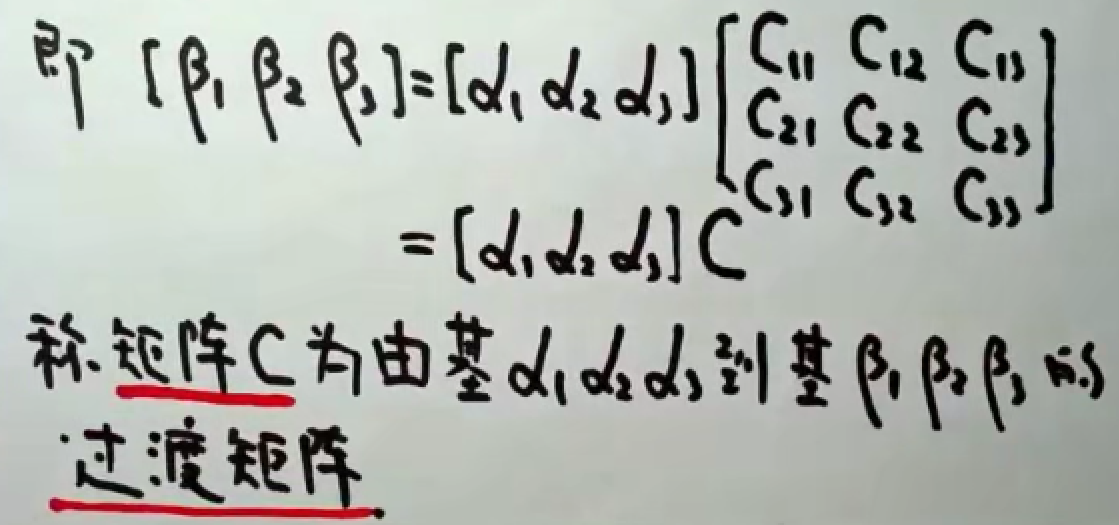 即 [β₁ β₂ β₃]=[α₁ α₂ α₃] [C₁₁ C₁₂ C₁₃
C₂₁ C₂₂ C₂₃
C₃₁ C₃₂ C₃₃]
=[α₁ α₂ α₃] C
称.矩阵C为由基α₁α₂α₃到基β₁β₂β₃的
过渡矩阵.